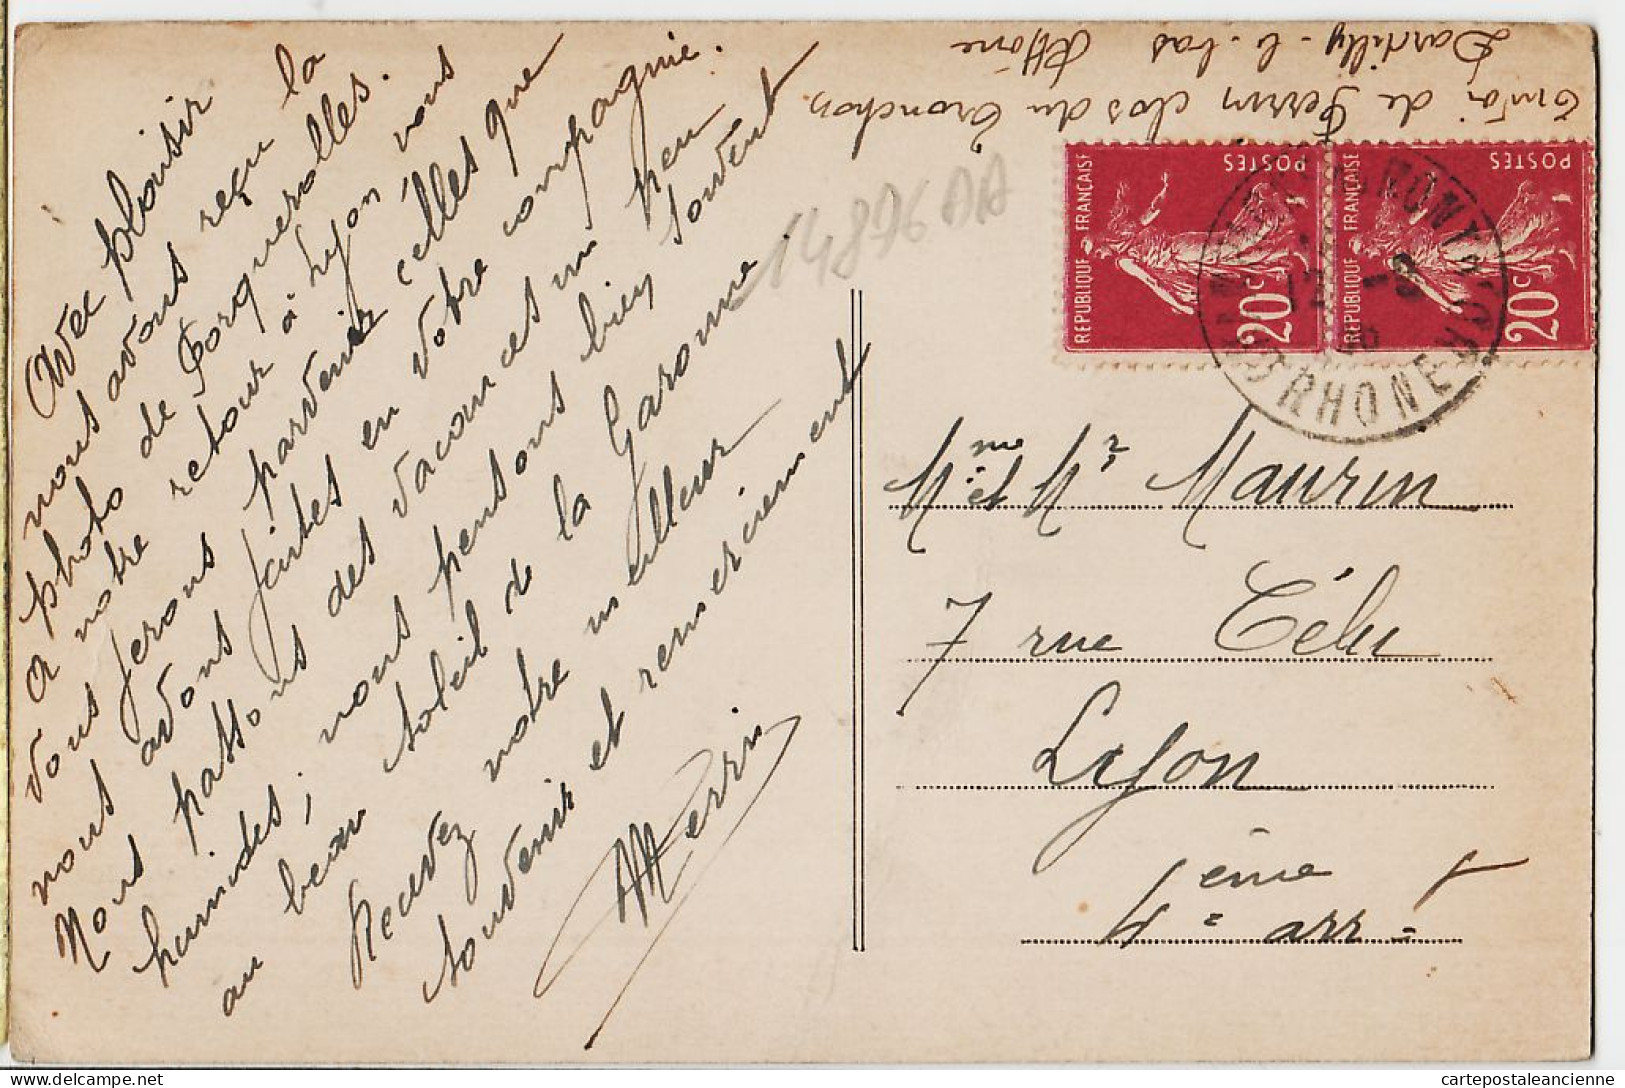 Avec plaisir
nous avons reçu la
photo de Porquerolles.
A notre retour à Lyon vous
vous ferons parvenir celles que
nous avons faites en votre compagnie.
Nous passons des vacances un peu
humides, nous pensons bien souvent
au beau soleil de la Garonne.
Recevez notre meilleur
souvenir et remerciement
MPerrin
Envoi de Perrin clos du Tronchon
Dardilly-le-bas Rhône
14876 AA
POSTES
REPUBLIQUE FRANÇAISE
20c
POSTES
REPUBLIQUE FRANÇAISE
20c
RHONE
Mme et Mr Maurin
7 rue Célu
Lyon
4ème arr
cartepostaleancienne